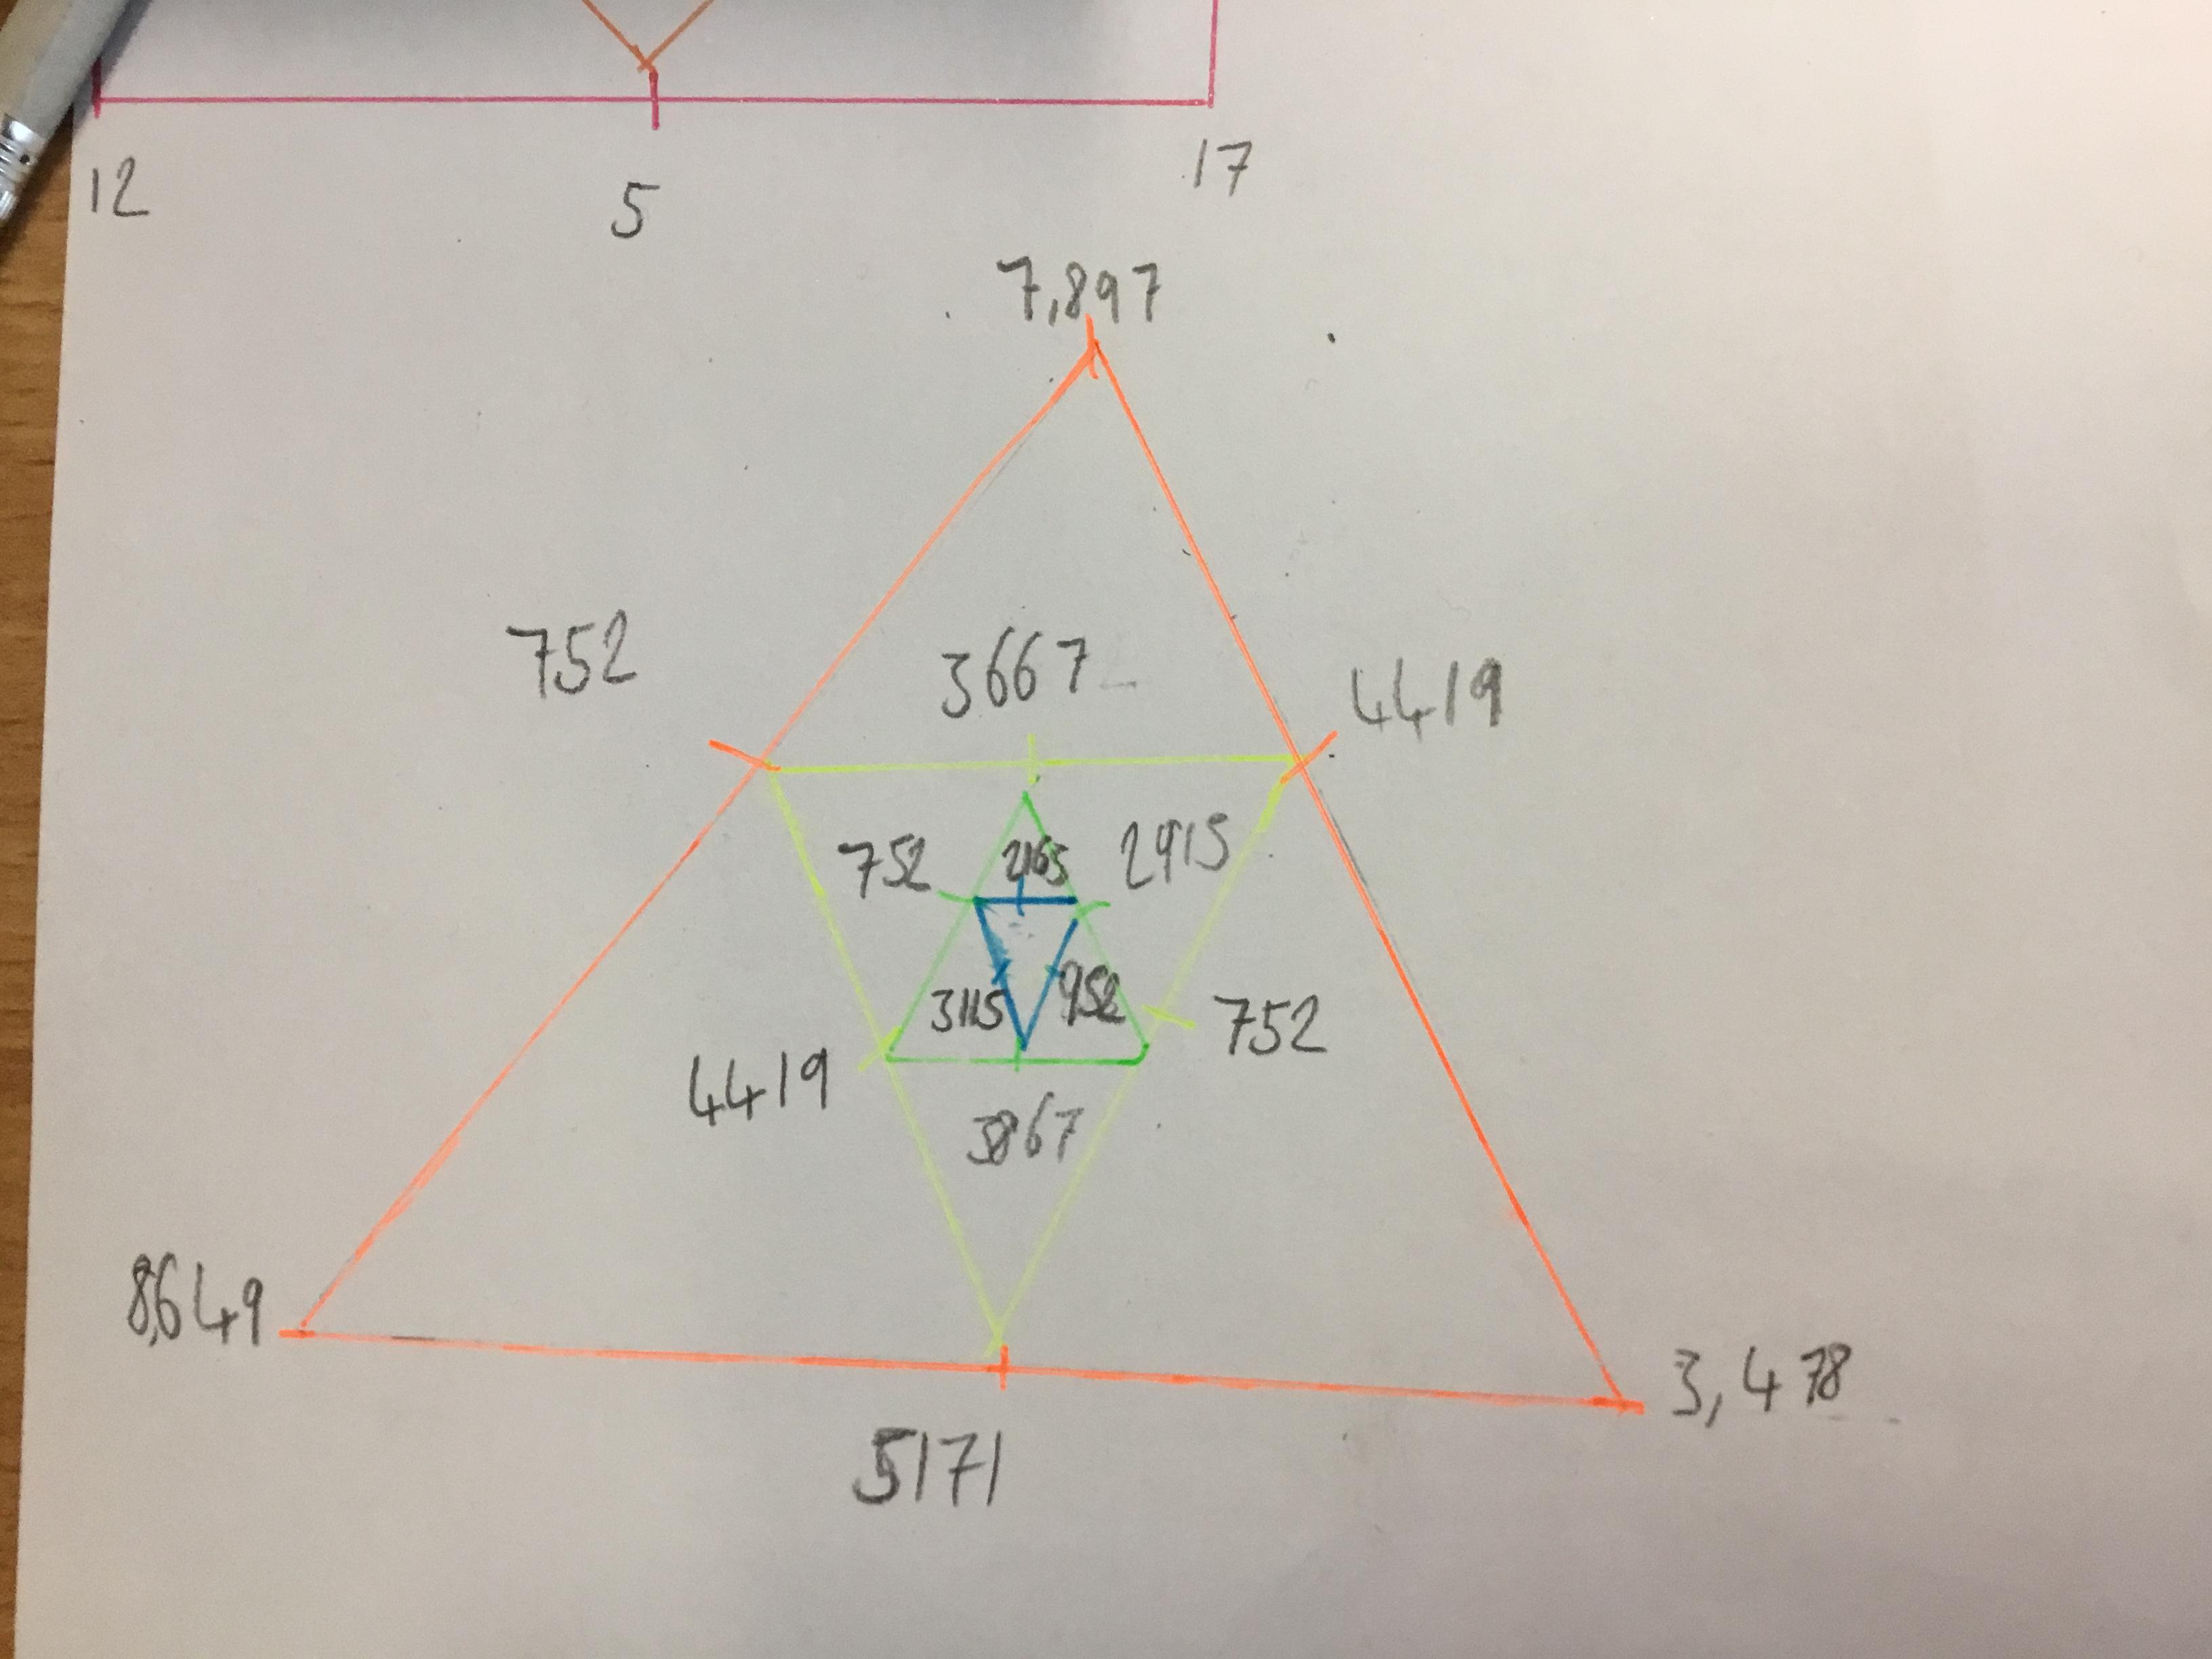 12
5
17
7,897
752
3667
4419
752
2165
2915
3115
952
752
4419
3867
8,649
3,478
5171